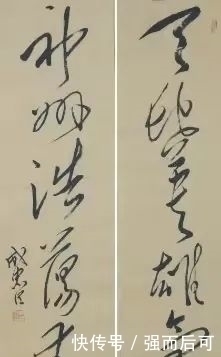 天地英雄氣
神州浩蕩
快传号 / 强而后可